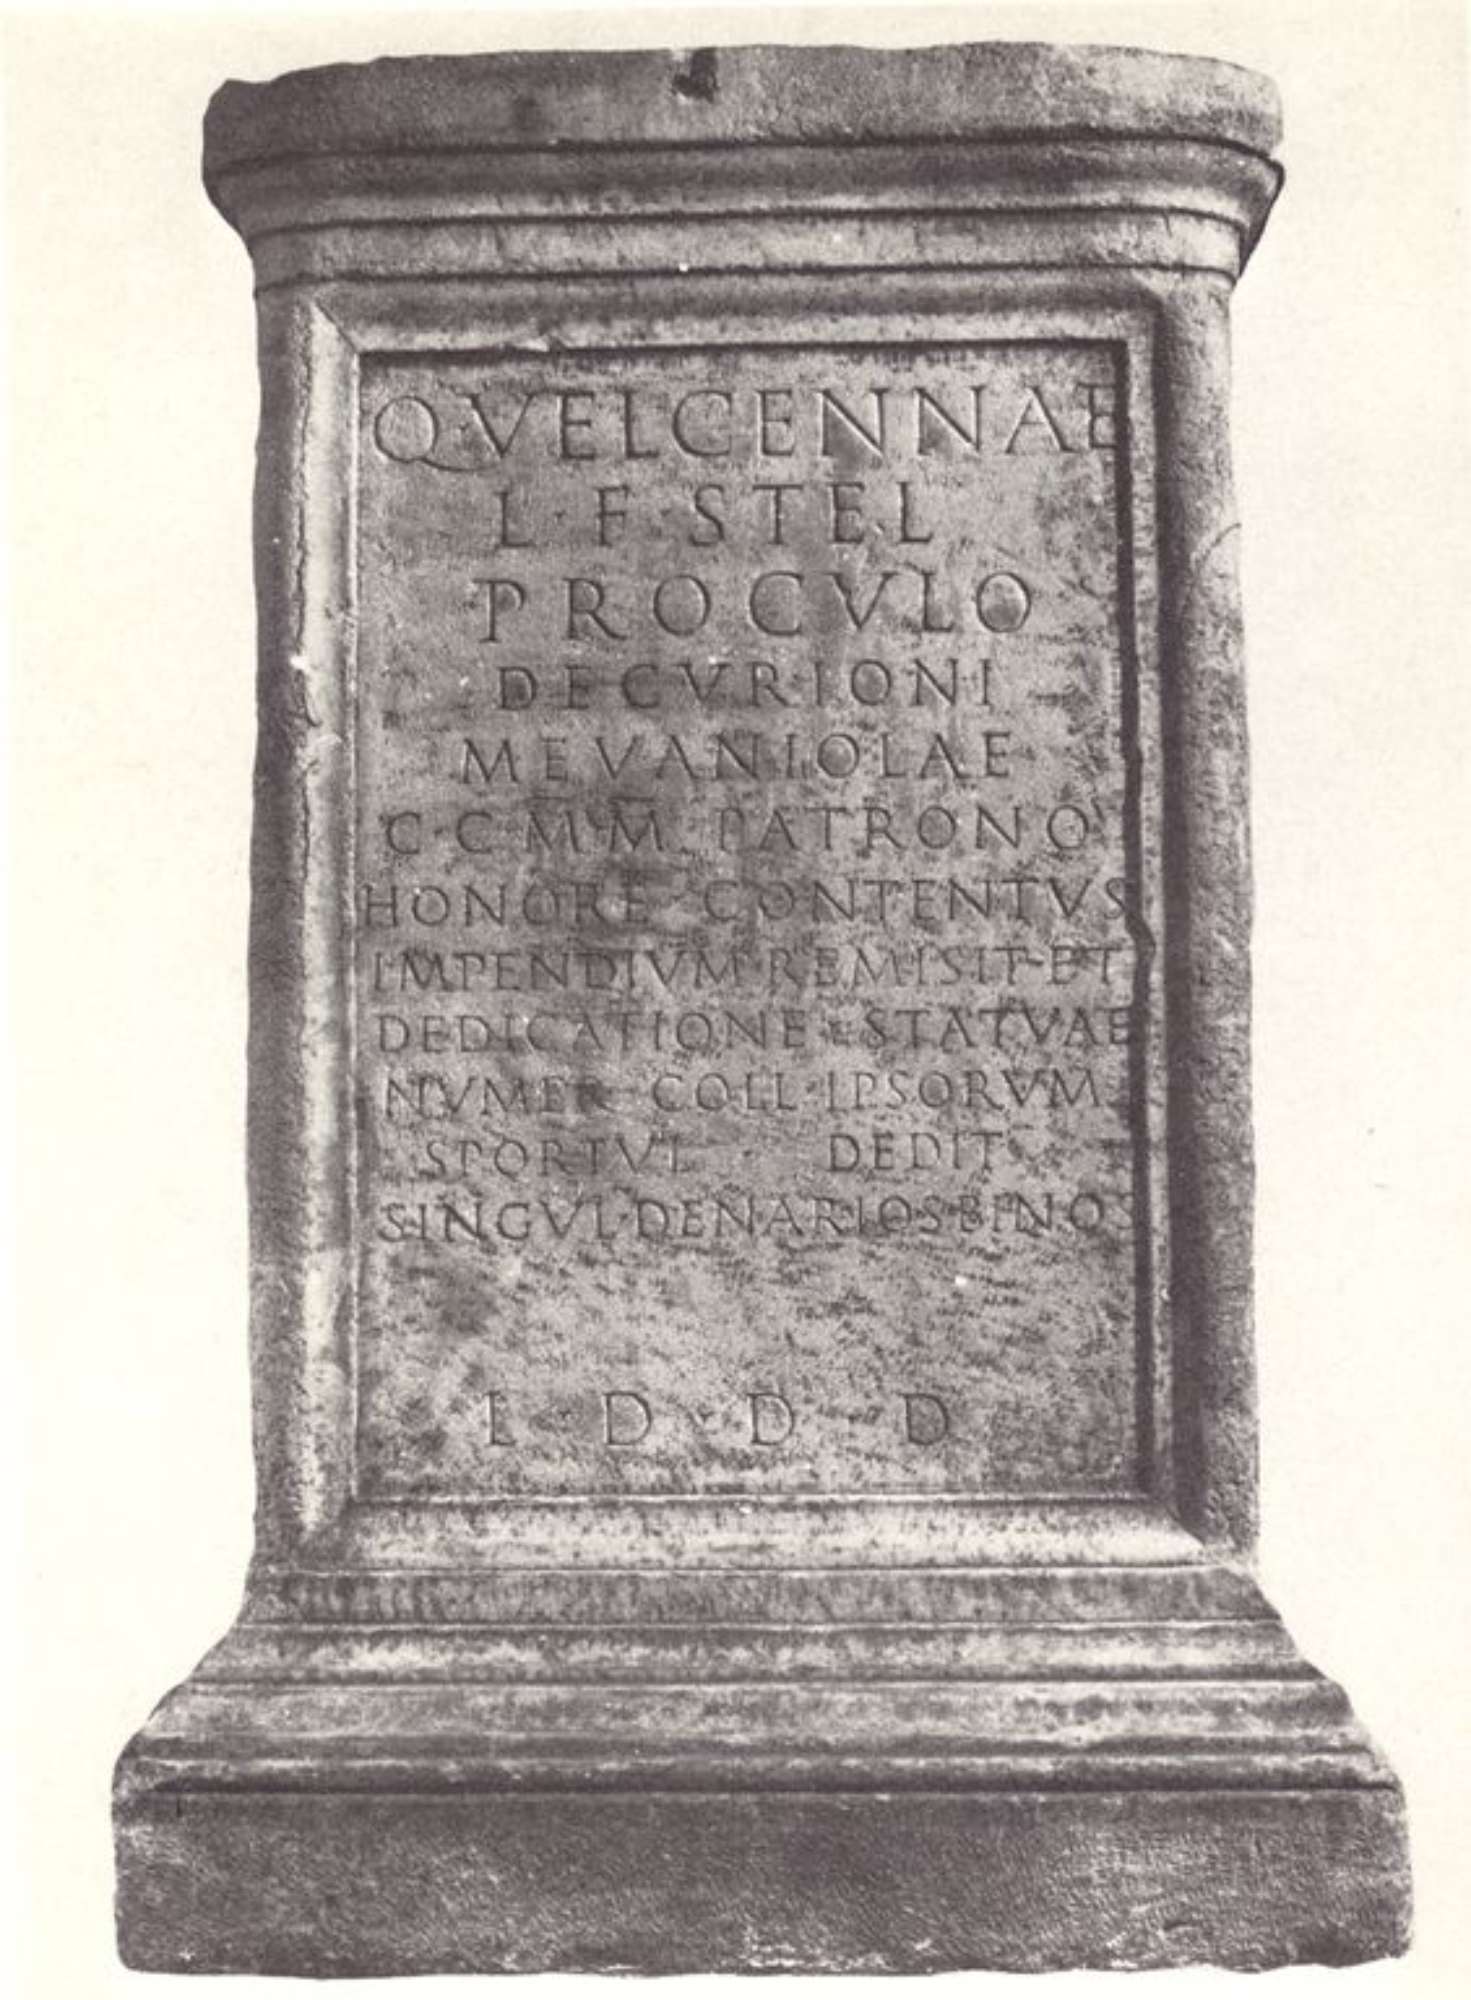 Q·VELCENNAE
L·F·STEL
PROCVLO
DECVRIONI
MEVANIOLAE
C·C·M·M·PATRONO
HONORE CONTENTVS
IMPENDIVM REMISIT·ET
DEDICATIONE STATVAE
NVMER COLL·IPSORVM
SPORTVL DEDIT
SINGVL·DENARIOS BINOS
L·D·D·D